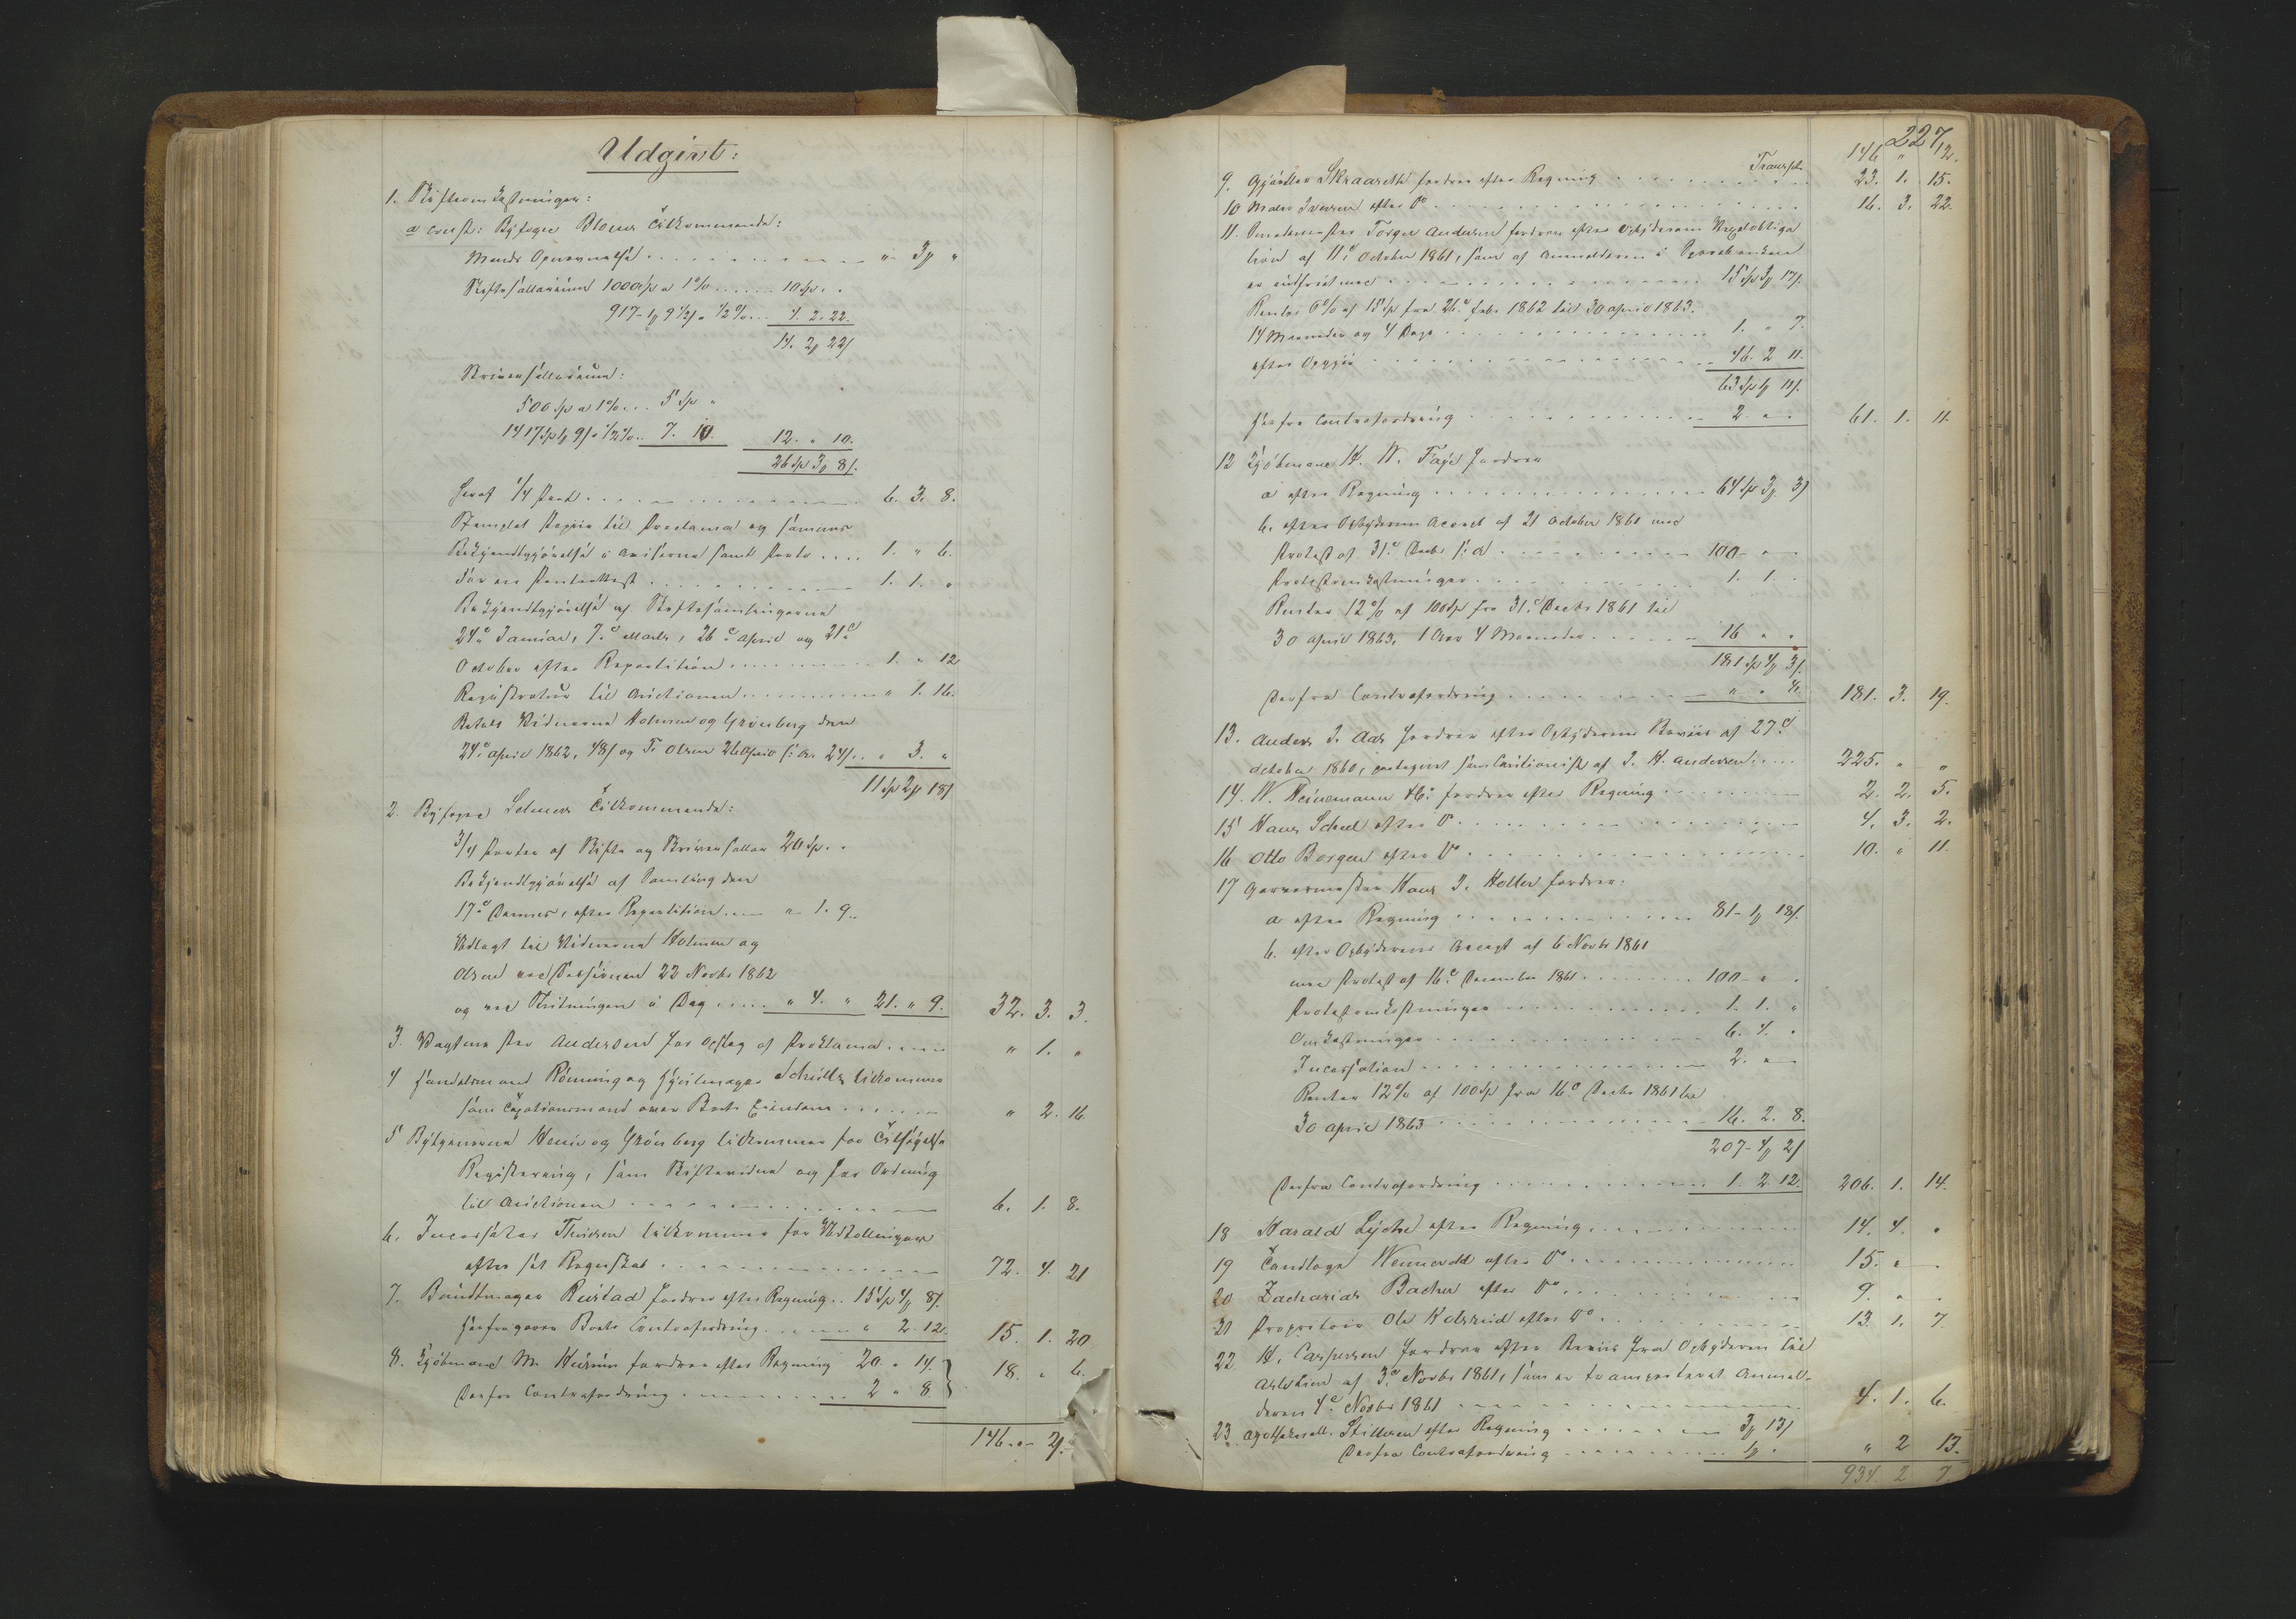 Udgivt:
1. Skifteomkostninger:
a const: Byfoged Bloms Tilkommende:
Mænds Opnævnelse . . . . " 3 "
Skiftesallarium 1000 Sp a 1% . . . 10 Sp. "
917 - 1 9½ a ½% . . . 4. 2. 22.
14. 2 22
Skriversallarium:
500 Sp a 1% . . . 5 Sp "
1417 Sp 1 9 a ½% . . 7. 10. 12. " 10.
26 Sp 3 8
heraf ¼ Part . . . . 6. 3. 8.
Stemplet Papir til Proclama og sammes
Bekjendtgjørelse i Aviserne samt Porto . . . . 1. " 6.
For en Panteattest . . . . 1. 1. "
Bekjendtgjørelse af Skiftesamlingerne
24de Januar, 7de Marts, 26de April og 21de
October efter Repartition . . . . 1. " 12
Registratur til Auctionen . . . . " 1. 16.
Betalt Vidnerne Holmsen og Grønberg den
24de April 1862, 48 og T. Olsen 26 April s. A. 24 . . " 3. "
11 Sp 2 18
2. Byfoged Selmers Tilkommende:
¾ Parter af Skifte og Skriversallar 20 Sp. "
Bekjendtgjørelse af Samling den
17de Dennes, efter Repartition . . " 1. 9.
Udlagt til Vidnerne Holmsen og
Olsen ved Sessionen 22 Novbr 1862
og ved Slutningen i Dag . . . . " 4. " 21. " 9. 32. 3. 3.
3. Vagtmester Andersen for Opslag af Proklama . . . . " 1. "
4 Handelsmand Rønning og Hjulmager Schultz tilkommer
som Taxationsmænd over Boets Eiendom . . . . " 2. 16.
5 Bytjenerne Henie og Grønberg tilkommer for Tilsigelse
Registrering, som Skiftevidner og for Ordning
til Auctionen . . . . 6. 1. 8.
6. Incassator Thuesen tilkommer for Udtællinger
efter sit Regnskab . . . . 72. 4. 21
7. Bundtmager Rustad fordrer efter Regning . . 15 Sp 4 8
herfra gaaer Boets Contrafordring . . . . " 2. 12. 15. 1. 20
8. Kjøbmand M. Husum fordrer efter Regning 20. " 14.
Derfra Contrafordring . . . . 2 " 8 18. " 6.
146. " 2
227
Transpt. 146 " 12.
9. Gjørtler Skraarsth fordrer efter Regning . . . . 23. 1. 15.
10 Maler Iversen efter Do . . . . 16. 3. 22.
11. Smedemester Torger Andersen fordrer efter Opbyderens Vexelobliga
tion af 11te October 1861, som af Anmelderen i Sparebanken
er indfriet med . . . . 15 Sp 3 17
Renter 6% af 15 Sp fra 26de Febr. 1862 til 30 April 1863.
14 Maaneder og 4 Dage . . . . 1. " 7.
efter Opgjør . . . . 46. 2 11.
63 Sp 1 11
herfra Contrafordring . . . . 2. " " 61. 1. 11.
12 Kjøbmand H. W. Faye fordrer
a efter Regning . . . . 64 Sp 3 3
b. efter Opbyderens Accept af 21 October 1861 med
Protest af 31te Decbr s. A . . . . 100 - " -
Protestomkostninger . . . . 1. 1. "
Renter 12% af 100 Sp fra 31te Decbr 1861 til
30 April 1863. 1 Aar 4 Maaneder . . . . 16 " "
181 Sp 4 3
Derfra Contrafordring . . . . " " 181. 3. 19.
13. Anders J. Aas fordrer efter Opbyderens Beviis af 27de
October 1860, paategnet som Cautionist af J. H. Andersen . . . . 225. " "
14. W. Heinemann &Co: fordrer efter Regning . . . . 2. 2. 5.
15 Hans Scheel efter Do . . . . 4. 3. 2.
16 Otto Borgen efter Do . . . . 10. " 11.
17 Garvermester Hans J. Holter fordrer:
a efter Regning . . . . 81 - 1 18
b. efter Opbyderens Accept af 6 Novbr 1861
med Protest af 16de December 1861 . . . . 100 - " .
Protestomkostninger . . . . 1. 1. "
Omkostninger . . . . 6. 4. "
Incassation . . . . 2. " -
Renter 12% af 100 Sp fra 16de Decbr 1861 til
30 April 1863 . . . . 16. 2. 8.
207 - 4 2
Derfra Contrafordring . . . . 1. 2 12. 206. 1. 14.
18 Harald Lyche efter Regning . . . . 14. 4. "
19 Tandlæge Wennevold efter Do . . . . 15. " -
20 Zacharias Bacher efter Do . . . . 9. " .
21 Proprietair Ole Kolsrud efter Do . . . . 13. 1. 7
22 H. Caspersen fordrer efter Beviis fra Opbyderen til
Aslaksen af 3de Novbr 1861, som er transporteret Anmel-
deren 4de Novbr 1861 . . . . 4. 1. 6.
23. Apotheker Stillesen efter Regning . . . . 3 13
Derfra Contrafordring . . . . 1 . " 2 13.
934. 2 7.